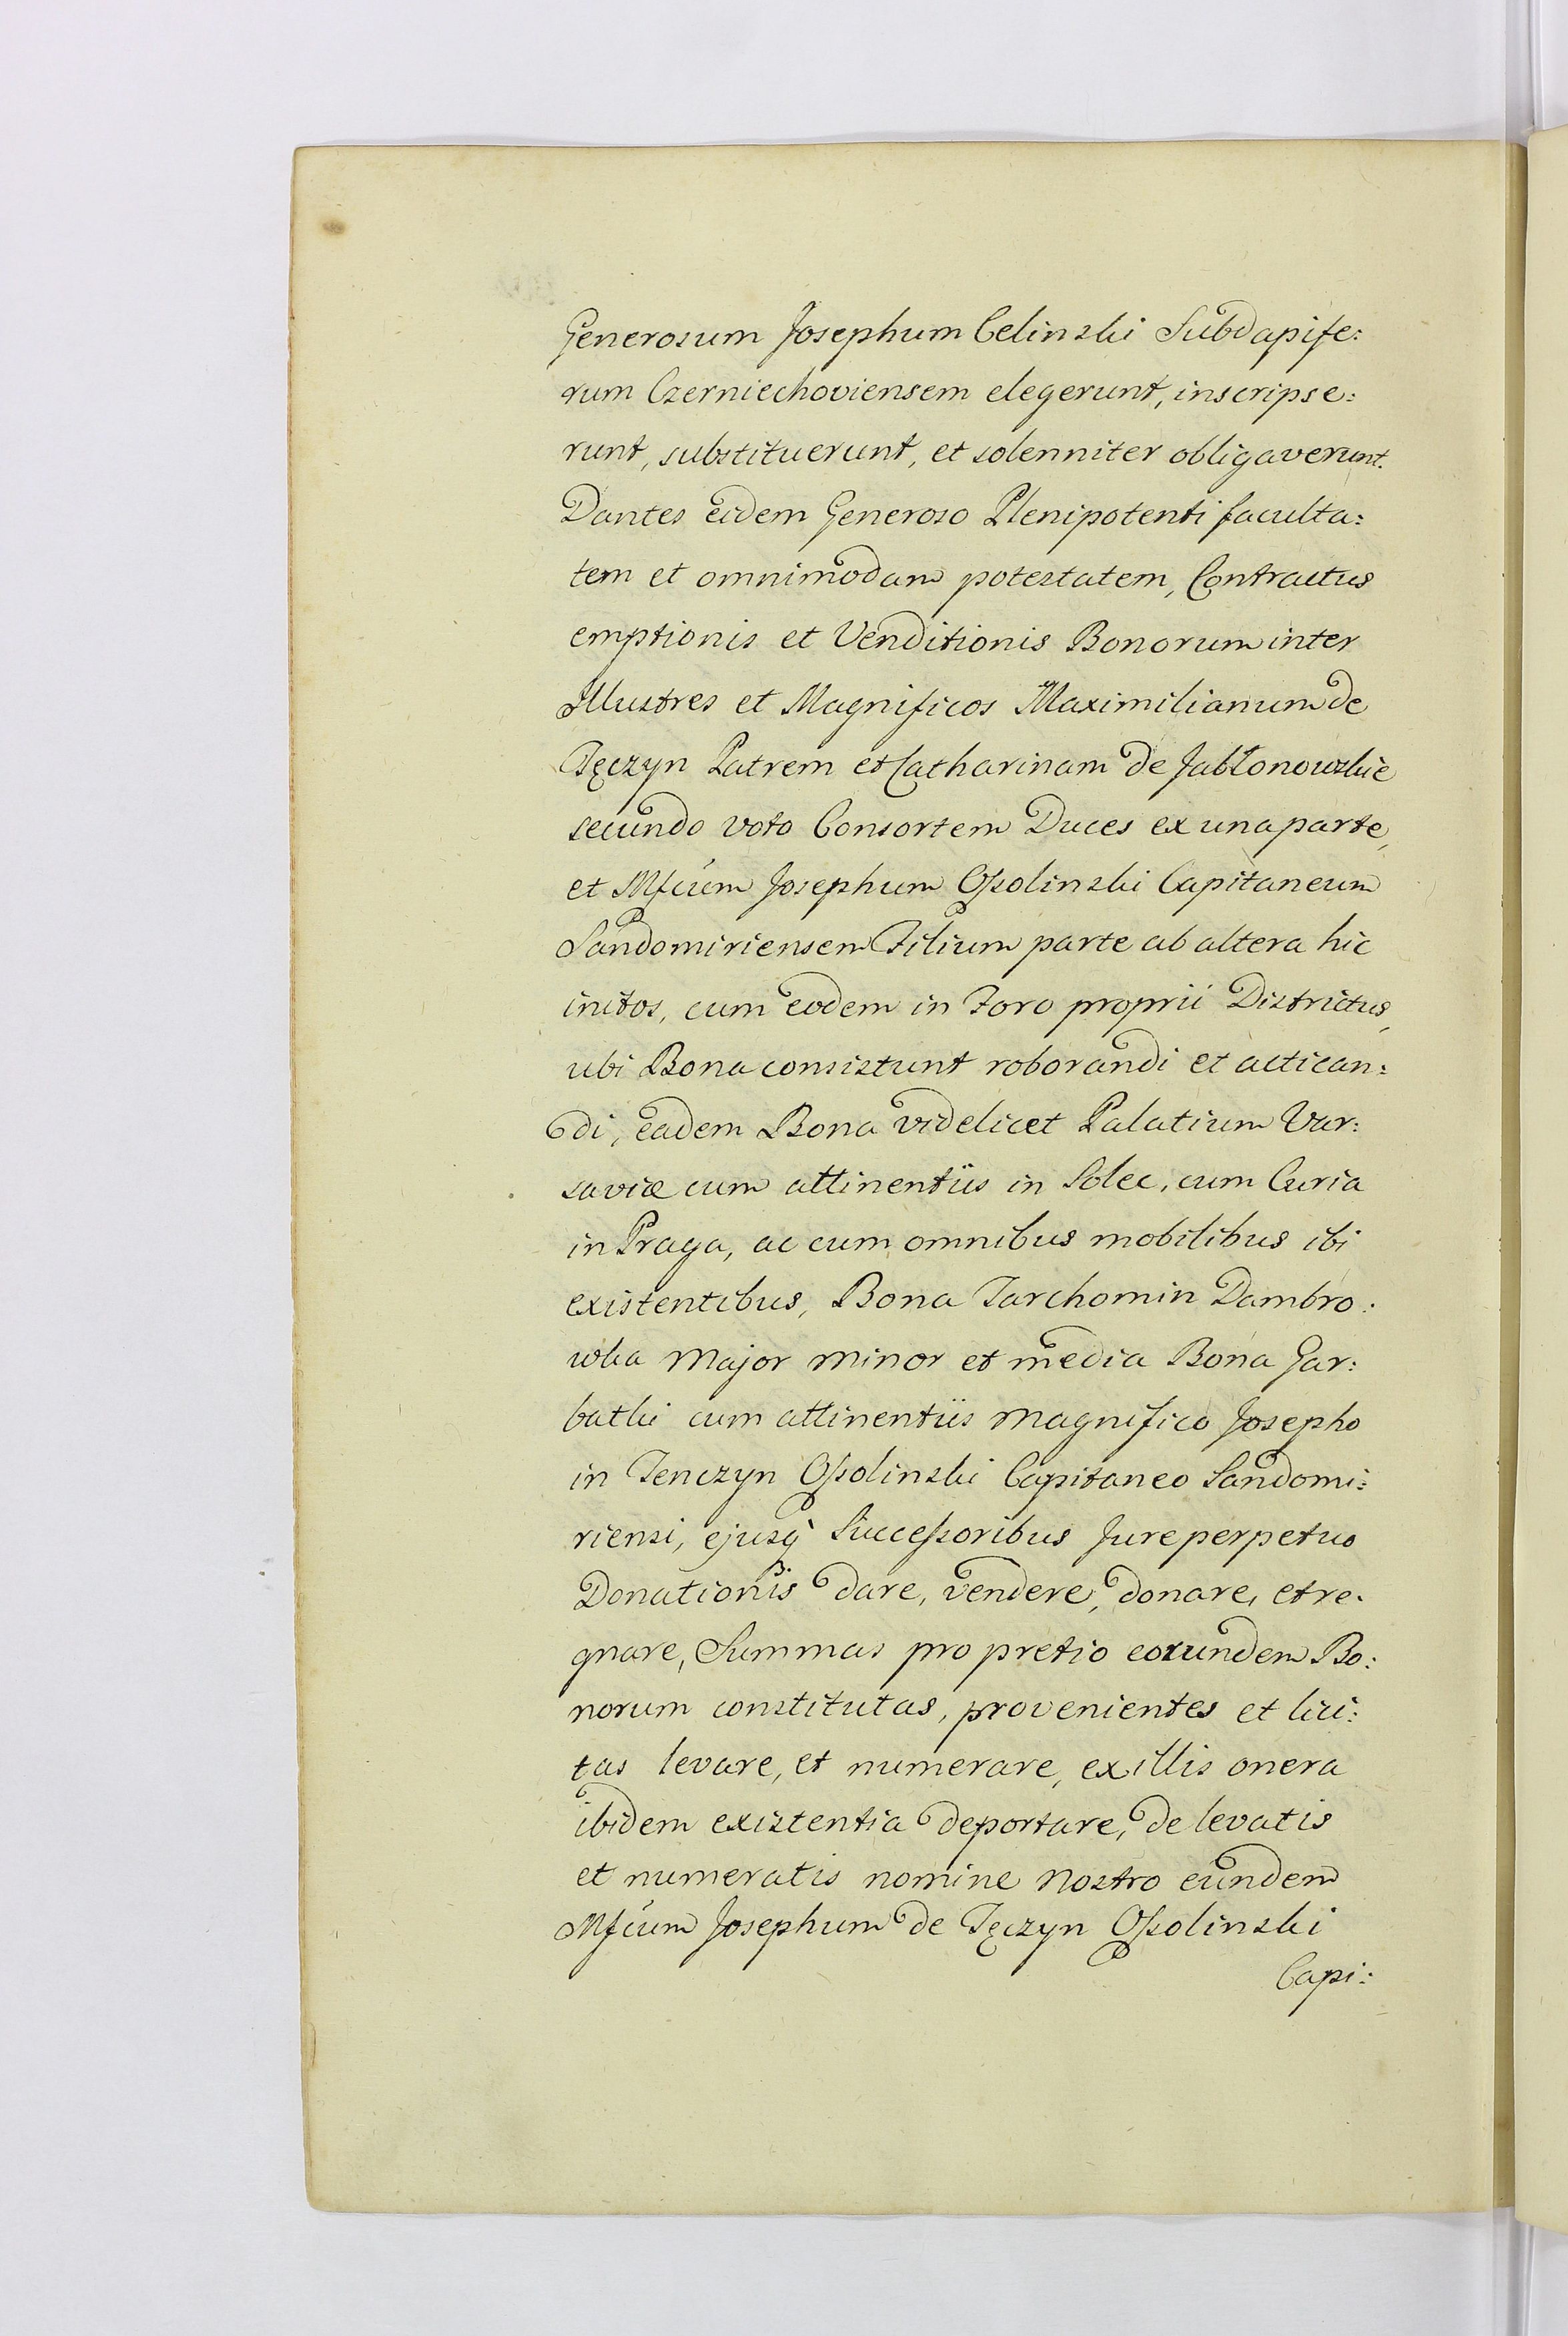 Generosum Josephum Celinski Subdapife:
rum Czerniechoviensem elegerunt, inscripse:
runt, substituerunt, et solenniter obligaverunt.
Dantes eidem Generoso Plenipotenti faculta:
tem et omnimodam potestatem, Contractus
emptionis et Venditionis Bonorum inter
Illustres et Magnificos Maximilianum de
Tęczyn Patrem et Catharinam de Jabłonowskie
secundo voto Consortem Duces ex una parte,
et Mfcum Josephum Ossolinski Capitaneum
Sandomiriensem Filium parte ab altera hic
initos, cum eodem in Foro proprii Districtus,
ubi Bona consistunt roborandi et actican:
di, eadem Bona videlicet Palatium Var:
saviæ cum attinentiis in Solec, cum Curia
in Praga, ac cum omnibus mobilibus ibi
existentibus, Bona Tarchomin Dambro:
wka Major minor et media Bona Gar:
batki cum attinentiis Magnifico Josepho
in Tenczyn Ossolinski Capitaneo Sandomi:
riensi, ejusq̀ Successoribus Jure perpetuo
Donationis dare, vendere, donare, et re.
gnare, Summas pro pretio eorundem Bo:
norum constitutas, provenientes et lici:
tas levare, et numerare, ex illis onera
ibidem existentia deportare, de levatis
et numeratis nomine nostro eundem
Mfcum Josephum de Tęczyn Ossolinski
Capi: